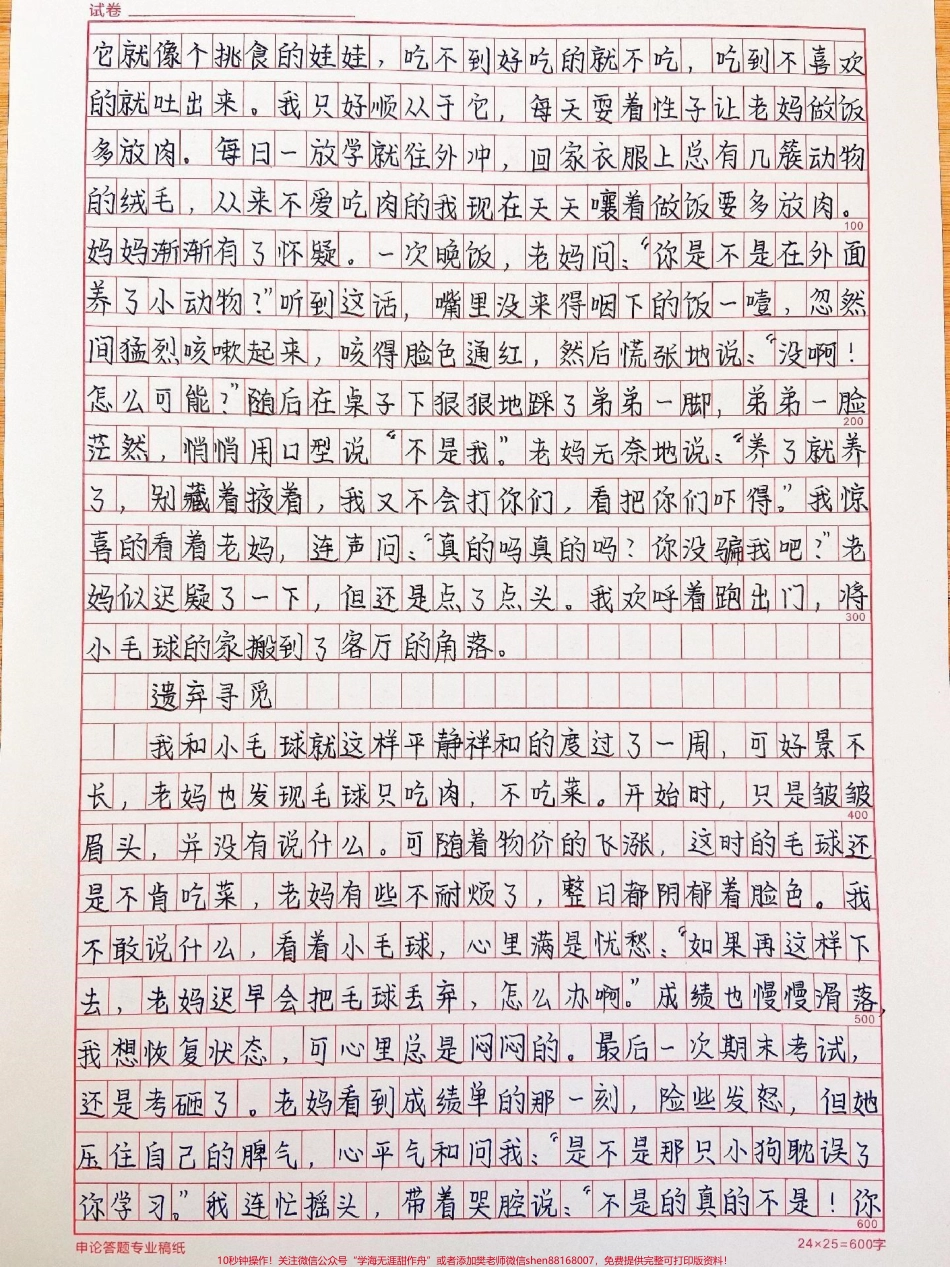 试卷
它就像个挑食的娃娃，吃不到好吃的就不吃，吃到不喜欢
的就吐出来。我只好顺从于它，每天耍着性子让老妈做饭
多放肉。每日一放学就往外冲，回家衣服上总有几簇动物
的绒毛，从来不爱吃肉的我现在天天嚷着做饭要多放肉。
100
妈妈渐渐有了怀疑。一次晚饭，老妈问：“你是不是在外面
养了小动物？”听到这话，嘴里没来得咽下的饭一噎，忽然
间猛烈咳嗽起来，咳得脸色通红，然后慌张地说：“没啊！
怎么可能？”随后在桌子下狠狠地踩了弟弟一脚，弟弟一脸
200
茫然，悄悄用口型说“不是我。”老妈无奈地说：“养了就养
了，别藏着掖着，我又不会打你们，看把你们吓得。”我惊
喜的看着老妈，连声问：“真的吗真的吗？你没骗我吧？”老
妈似迟疑了一下，但还是点了点头。我欢呼着跑出门，将
300
小毛球的家搬到了客厅的角落。
遗弃寻觅
我和小毛球就这样平静祥和的度过了一周，可好景不
长，老妈也发现毛球只吃肉，不吃菜。开始时，只是皱皱
400
眉头，并没有说什么。可随着物价的飞涨，这时的毛球还
是不肯吃菜，老妈有些不耐烦了，整日都阴郁着脸色。我
不敢说什么，看着小毛球，心里满是忧愁：“如果再这样下
去，老妈迟早会把毛球丢弃，怎么办啊。”成绩也慢慢滑落，
500
我想恢复状态，可心里总是闷闷的。最后一次期末考试，
还是考砸了。老妈看到成绩单的那一刻，险些发怒，但她
压住自己的脾气，心平气和问我：“是不是那只小狗耽误了
你学习。”我连忙摇头，带着哭腔说：“不是的真的不是！你
600
申论答题专业稿纸
24×25=600字
10秒钟操作！关注微信公众号“学海无涯甜作舟”或者添加樊老师微信shen88168007，免费提供完整可打印版资料！